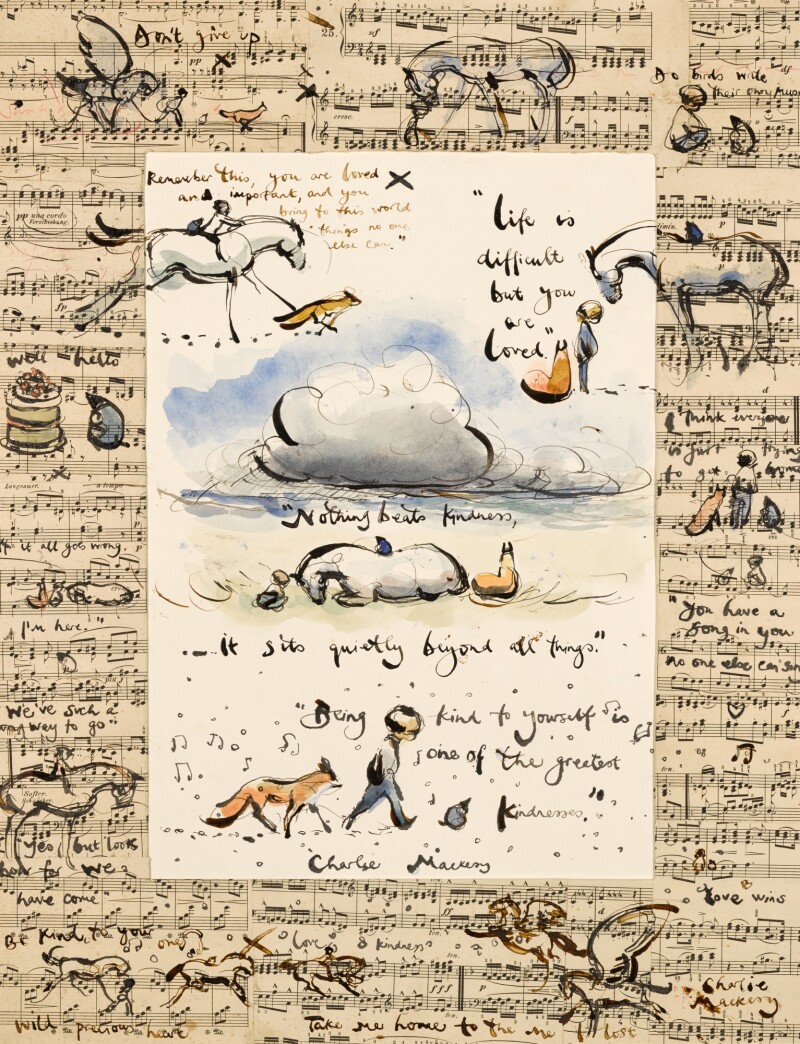 Don't give up
25.
Do birds write
their own music
Remember this, you are loved
and important, and you
bring to this world
things no one
else can."
"Life is
difficult
but you
are
loved."
pp una corda
well hello
I think everyone
is just trying
to get home
"Nothing beats kindness,
it all goes wrong.
I'm here."
... it sits quietly beyond all things."
"You have a
song in you
no one else can sing
We've such a
long way to go"
"Being kind to yourself is
one of the greatest
kindnesses."
Yes, but look
how far we
have come
Charlie Mackesy
Love wins
Be kind to your
Love & kindness
Charlie
Mackesy
wild precious heart
Take me home to the me I lost